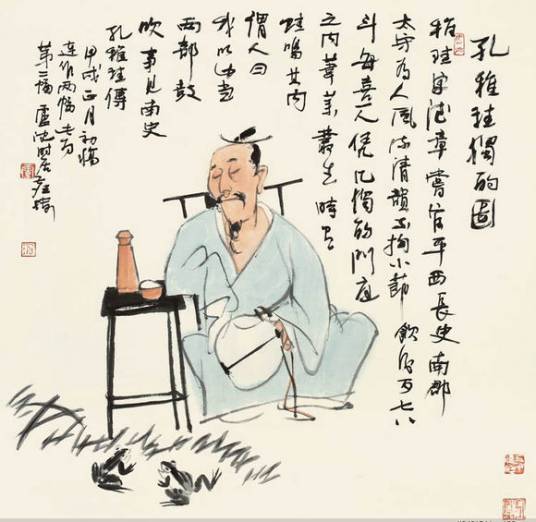 孔稚珪獨酌圖
稚珪字德璋嘗官平西長史南郡
太守為人風流清韻不拘小節飲酒至七八
斗每喜一人凭几獨酌門庭
之内草萊叢生時有
蛙鳴其内
謂人曰
我以此當
兩部鼓
吹事見南史
孔稚珪傳
甲戌正月初
連作兩幅此為
第二幅盧沈